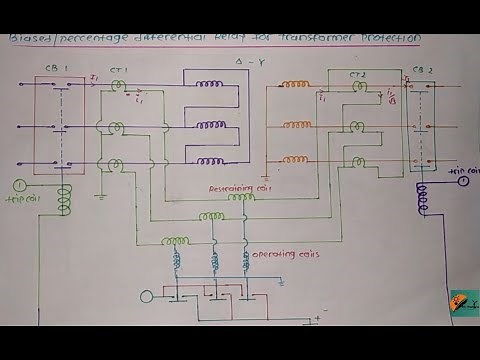 Biased/percentage differential Relay for Transformer Protection
CB 1
I₁
CT1
Δ - Y
CT2
CB 2
i₁
i₁
i₁/√3
trip coil
Restraining coil
trip coil
operating coils
+ -